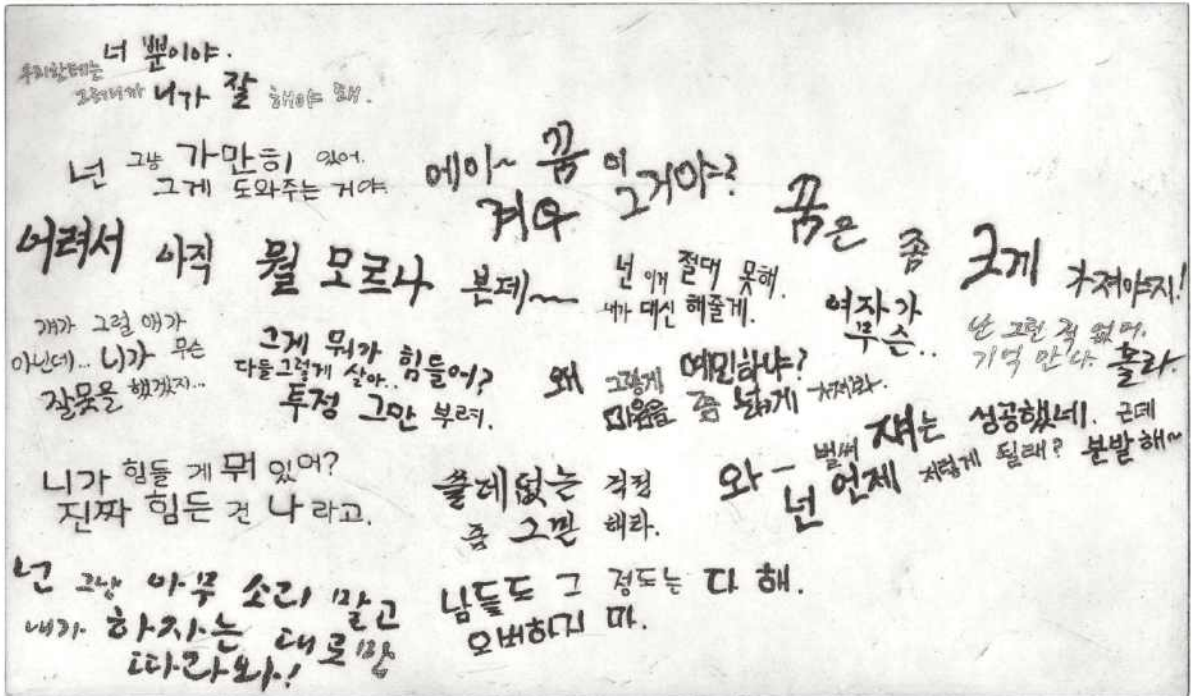 우리한테는 너 뿐이야.
그러니까 니가 잘 해야 돼.
넌 그냥 가만히 있어.
그게 도와주는 거야.
에이~ 꿈이
겨우 그거야?
꿈은 좀 크게 가져야지!
어려서 아직 뭘 모르나 본데~
넌 이거 절대 못해.
내가 대신 해줄게.
여자가
무슨..
난 그런 적 없어.
기억 안나. 몰라.
걔가 그럴 애가
아닌데... 니가 무슨
잘못을 했겠지...
그게 뭐가 힘들어?
다들그렇게 살아..
투정 그만 부려.
왜 그렇게 예민하냐?
마음을 좀 넓게 가져라.
와- 벌써 쟤는 성공했네. 근데
넌 언제 저렇게 될래? 분발해~
니가 힘들 게 뭐 있어?
진짜 힘든 건 나라고.
쓸데없는 걱정
좀 그만 해라.
넌 그냥 아무 소리 말고
내가 하자는 대로만
따라와!
남들도 그 정도는 다 해.
오버하지 마.